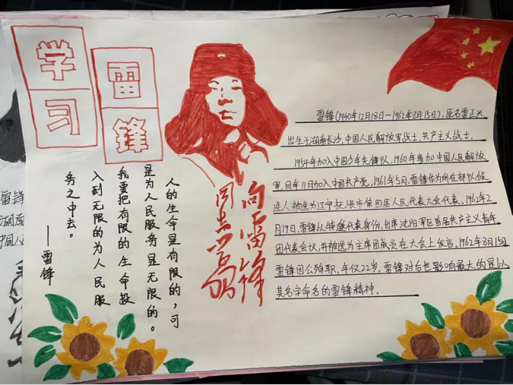 学习
雷锋
人的生命是有限的，可
是为人民服务是无限的。
我要把有限的生命投
入到无限的为人民服
务之中去。
——雷锋
向雷锋
同志学习
雷锋（1940年12月18日—1962年8月15日），原名雷正兴
出生于湖南长沙，中国人民解放军战士，共产主义战士。
1954年加入中国少年先锋队，1960年参加中国人民解放
军，同年11月加入中国共产党。1961年5月，雷锋作为所在部队候
选人，被选为抚顺市第四届人民代表大会代表。1962年2
月19日，雷锋以特邀代表身份，出席沈阳军区首届共产主义青年
团代表会议，并被选为主席团成员在大会上发言。1962年8月15日
雷锋因公殉职，年仅22岁。雷锋对后世影响最大的是以
其名字命名的雷锋精神。